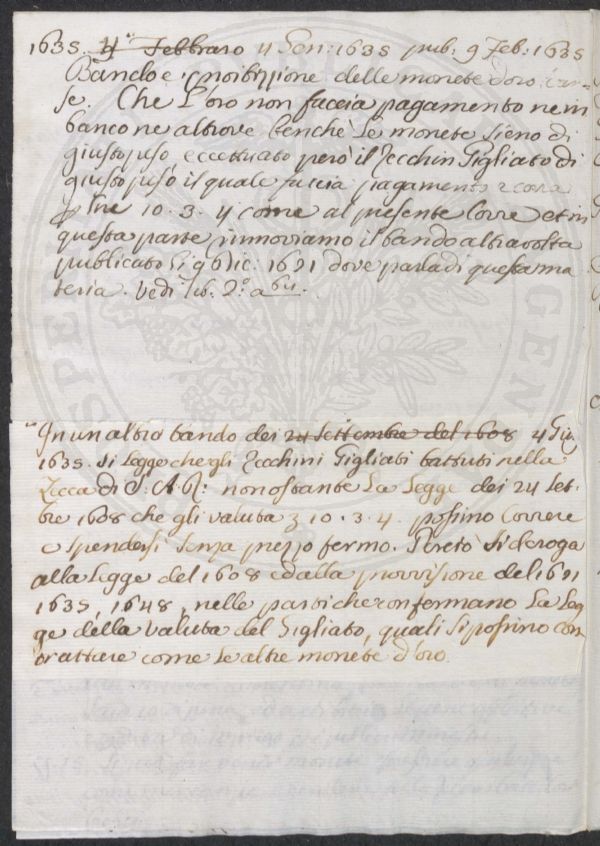 1635. 4. Febbraro 4 Gen: 1635 pub: 9 Feb: 1635
Bando e proibizione delle monete d'oro
se. Che L'oro non faccia pagamento ne in
banco ne altrove benche Le monete sieno di
giusto peso, eccettuato però il Zecchin Gigliato di
giusto peso il quale faccia pagamento e corra
p lire 10. 3. 4 come al presente Corre et in
questa parte innoviamo il bando altra volta
publicato li 9 Dic: 1621 dove parla di questa ma
teria. Vedi Lib. 2.º a
In un altro bando dei 24 Settembre del 1608 4 Giu.
1635. si Legge che gli Zecchini Gigliati battuti nella
Zecca di S: A: R: non ostante La Legge dei 24 Set-
bre 1608 che gli valuta 10. 3. 4. possino Correre
e spendersi senza prezzo fermo. Perciò si deroga
alla Legge del 1608 e dalla provvisione del 1621
1635, 1648, nelle parti che confermano La Leg
ge della Valuta del Gigliato, quali si possino con
trattare come Le altre monete d'oro.